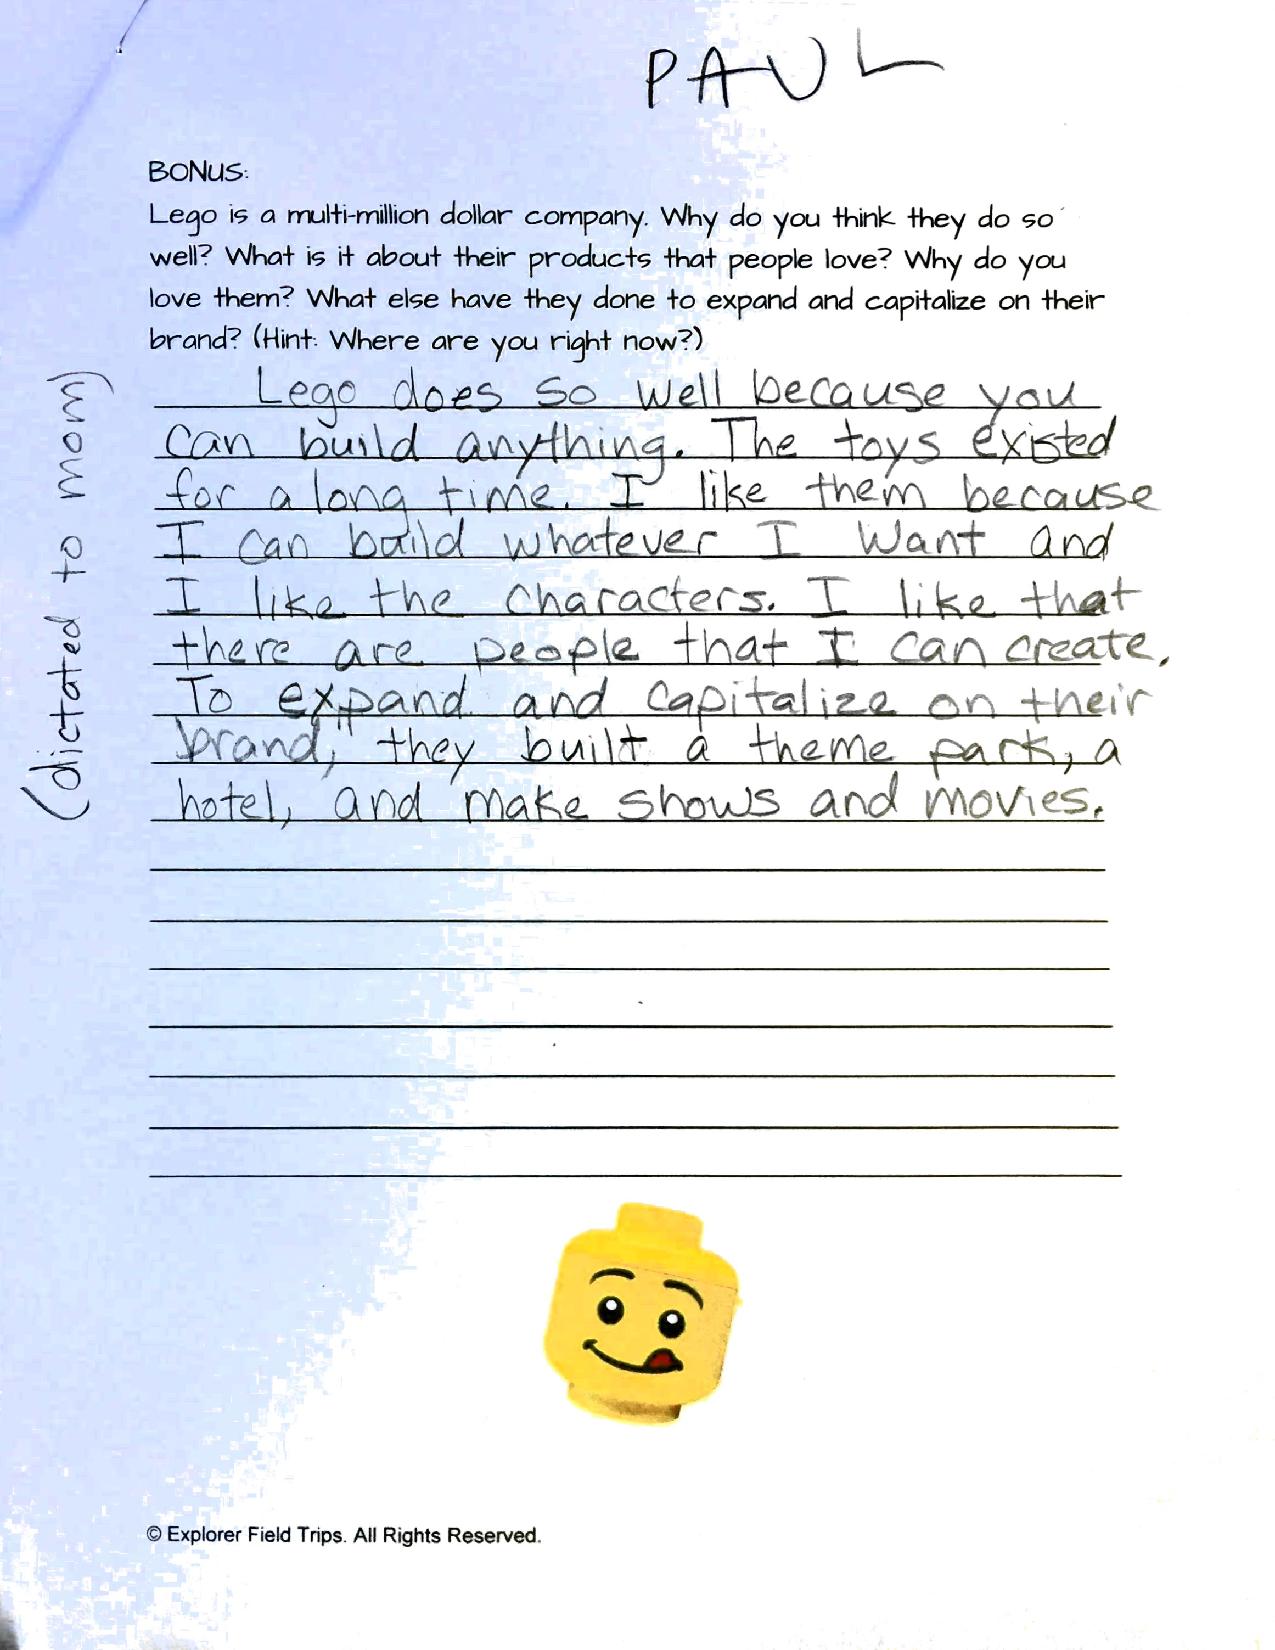 PAUL
BONUS:
Lego is a multi-million dollar company. Why do you think they do so
well? What is it about their products that people love? Why do you
love them? What else have they done to expand and capitalize on their
brand? (Hint: Where are you right now?)
(dictated to mom)
Lego does so well because you
can build anything. The toys existed
for a long time. I like them because
I can build whatever I want and
I like the characters. I like that
there are people that I can create.
To expand and capitalize on their
brand, they built a theme park, a
hotel, and make shows and movies.
© Explorer Field Trips. All Rights Reserved.